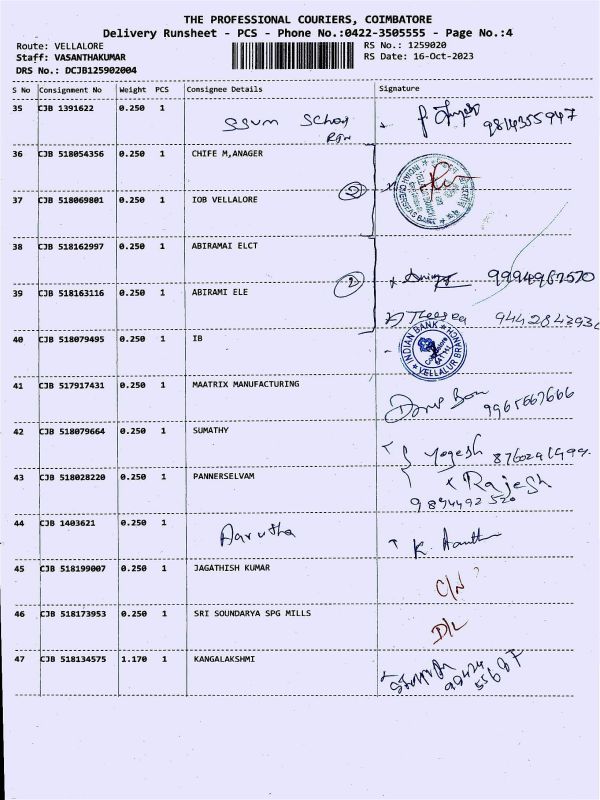 THE PROFESSIONAL COURIERS, COIMBATORE
Delivery Runsheet - PCS - Phone No.:0422-3505555 - Page No.:4
Route: VELLALORE RS No.: 1259020
Staff: VASANTHAKUMAR RS Date: 16-Oct-2023
DRS No.: DCJB125902004
S No Consignment No Weight PCS Consignee Details Signature
35 CJB 1391622 0.250 1 9814355947
36 CJB 518054356 0.250 1 CHIFE M,ANAGER
37 CJB 518069801 0.250 1 IOB VELLALORE
INDIAN OVERSEAS BANK
38 CJB 518162997 0.250 1 ABIRAMAI ELCT 9994967570
39 CJB 518163116 0.250 1 ABIRAMI ELE 2
40 CJB 518079495 0.250 1 IB
INDIAN BANK VELLALUR BRANCH
41 CJB 517917431 0.250 1 MAATRIX MANUFACTURING 9965667666
42 CJB 518079664 0.250 1 SUMATHY Yogesh
43 CJB 518028220 0.250 1 PANNERSELVAM x Rajesh
9894492520
44 CJB 1403621 0.250 1 Aarutha
45 CJB 518199007 0.250 1 JAGATHISH KUMAR C/N
46 CJB 518173953 0.250 1 SRI SOUNDARYA SPG MILLS D/L
47 CJB 518134575 1.170 1 KANGALAKSHMI